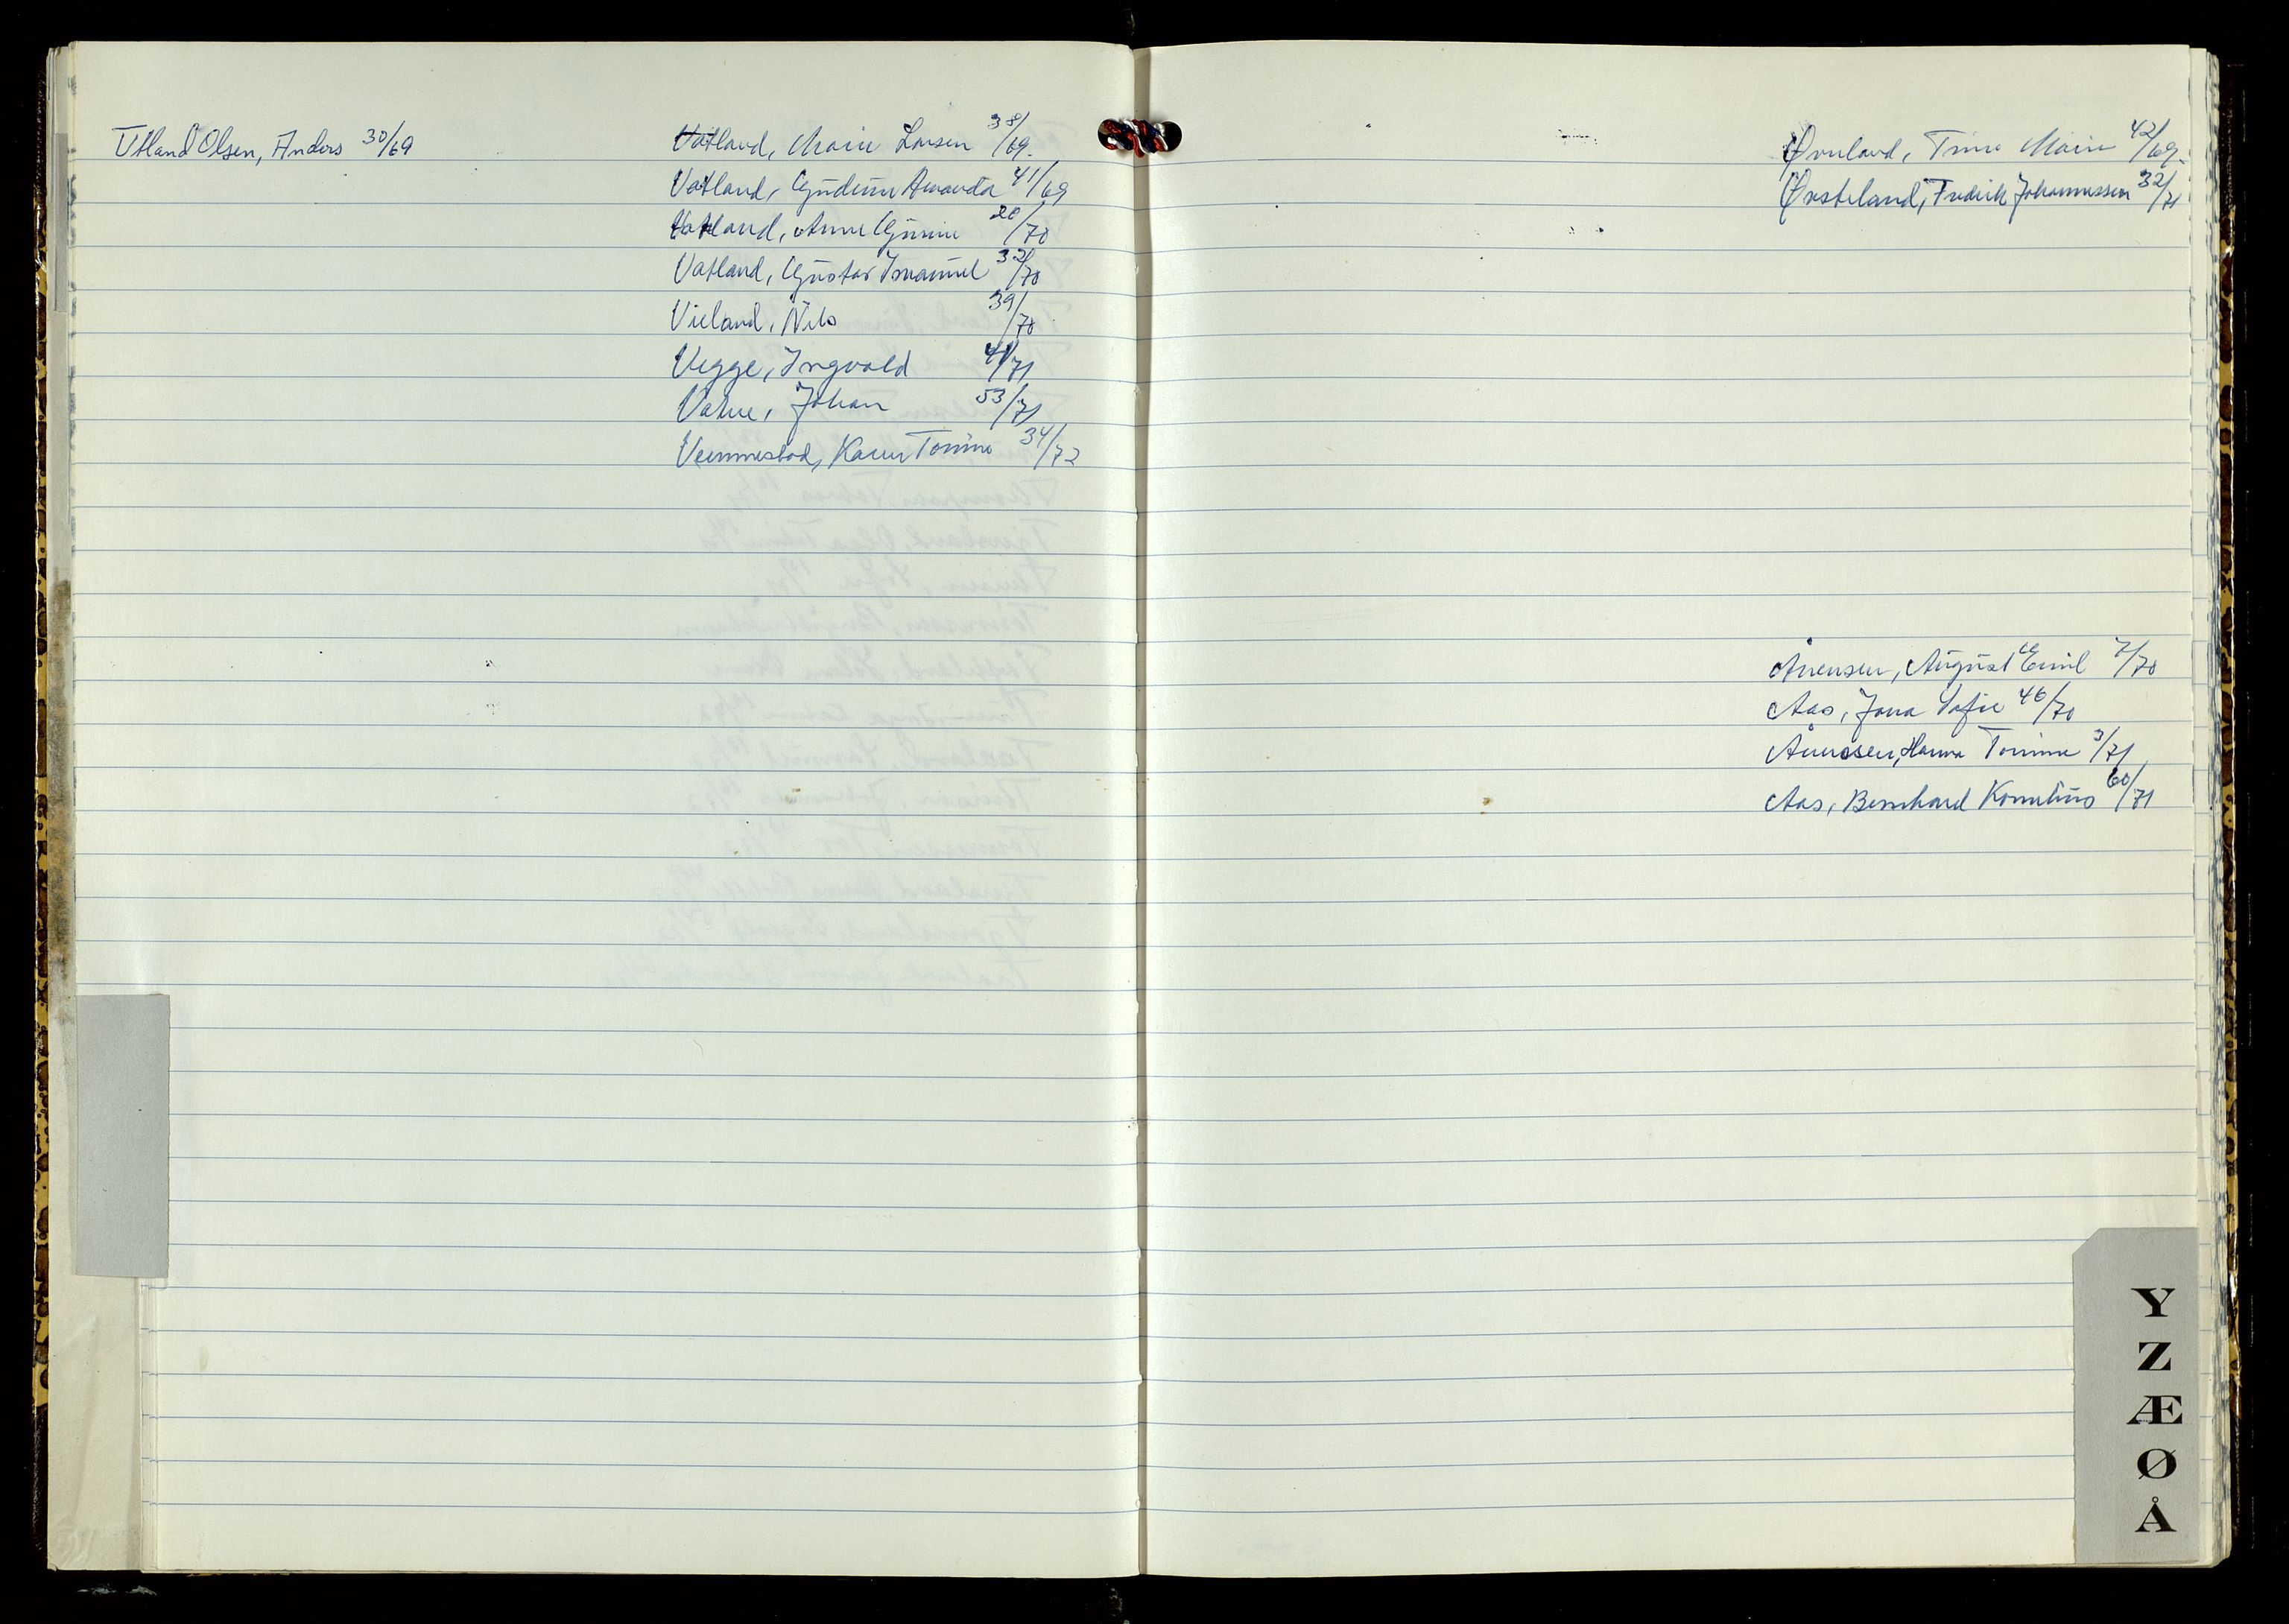 Utland Olsen, Anders 30/69
Vatland, Marie Larsen 38/69.
Vatland, Gudrun Amanda 41/69
Vatland, Anne Gurine 20/70
Vatland, Gustav Emanuel 32/70
Vieland, Nils 39/70
Vegge, Ingvald 41/71
Vatne, Johan 53/71
Vemmestad, Karen Tomine 34/72
Øvrland, Tine Marie 42/69.
Øysteland, Fredrik Johannessen 32/71
Ånensen, August Emil 7/70
Aas, Jona Sofie 46/70
Ånensen, Hanna Tomine 3/71
Aas, Bernhard Kornelius 60/71
Y
Z
Æ
Ø
Å